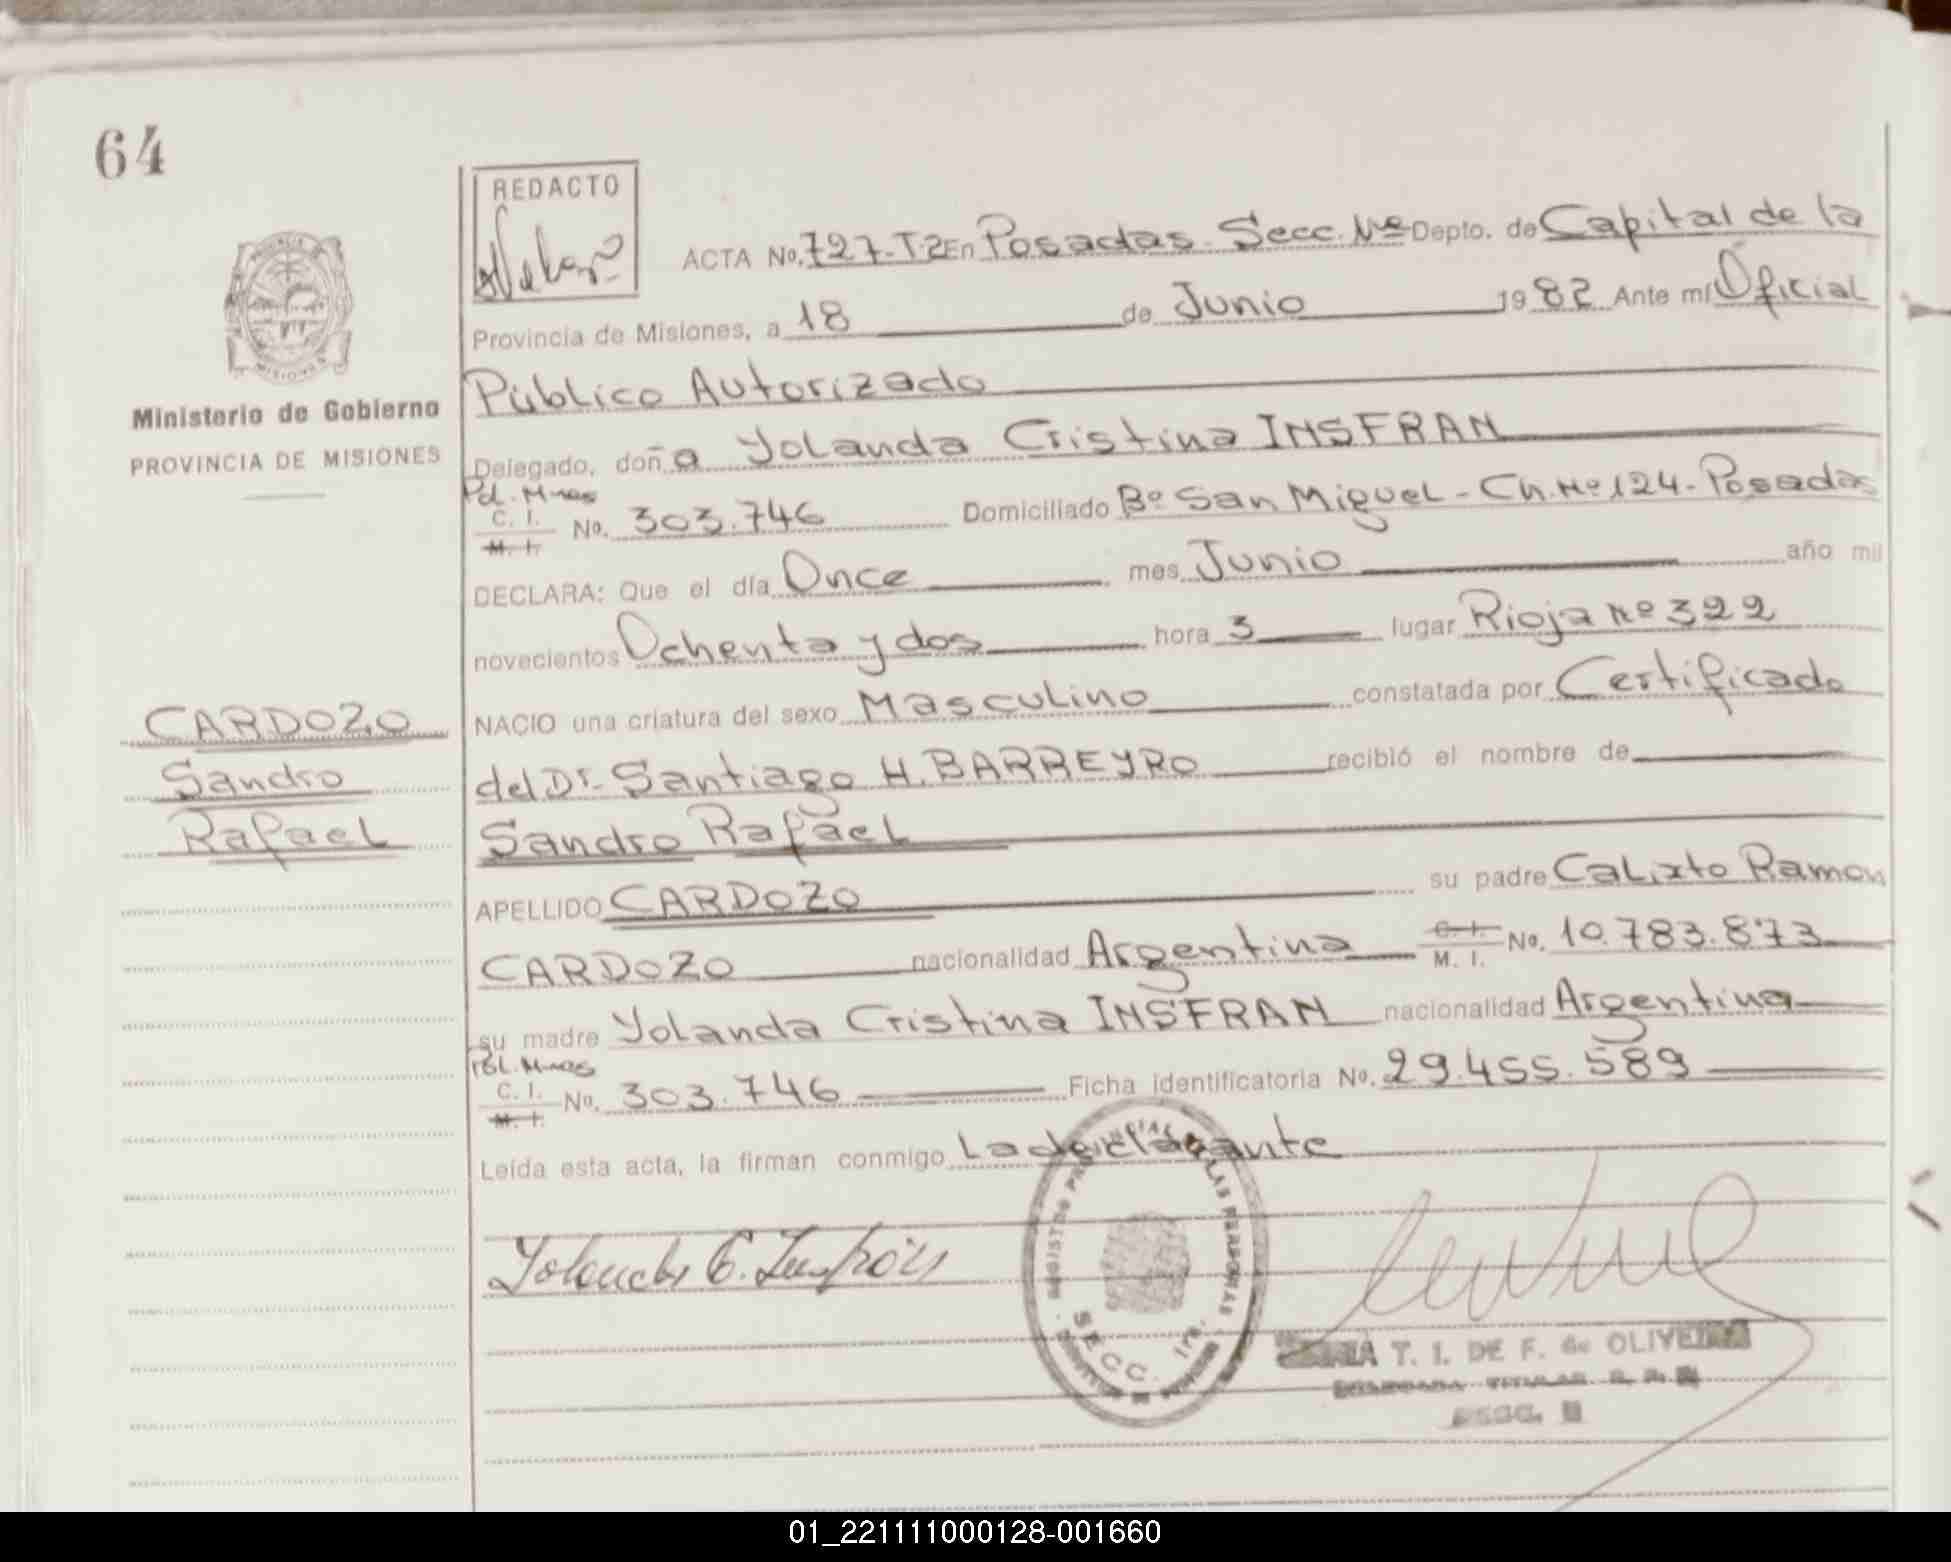 64
REDACTO
ACTA No. 727-T-2 En Posadas. Secc. Nº Depto. de Capital de la
Provincia de Misiones, a 18 de Junio 1982 Ante mí Oficial
Público Autorizado
Ministerio de Gobierno
PROVINCIA DE MISIONES
Delegado, doña Yolanda Cristina INSFRAN
Pol. Mnes
C. I.
M. I.
No. 303.746 Domiciliado Bº San Miguel - Ch. Nº 124 - Posadas
DECLARA: Que el día Once mes Junio año mil
novecientos Ochenta y dos hora 3 lugar Rioja Nº 322
NACIO una criatura del sexo Masculino constatada por Certificado
CARDOZO
Sandro
Rafael
del Dr. Santiago H. BARREYRO recibió el nombre de
Sandro Rafael
APELLIDO CARDOZO su padre Calixto Ramon
CARDOZO nacionalidad Argentina C. I. M. I. No. 10.783.873
su madre Yolanda Cristina INSFRAN nacionalidad Argentina
Pol. Mnes
C. I.
M. I.
No. 303.746 Ficha identificatoria No. 29.455.589
Leída esta acta, la firman conmigo La declarante
Yolanda C. Insfrán
REGISTRO PROVINCIAL DE LAS PERSONAS
SECC. 1ra.
T. I. DE F. de OLIVEIRA
01_221111000128-001660